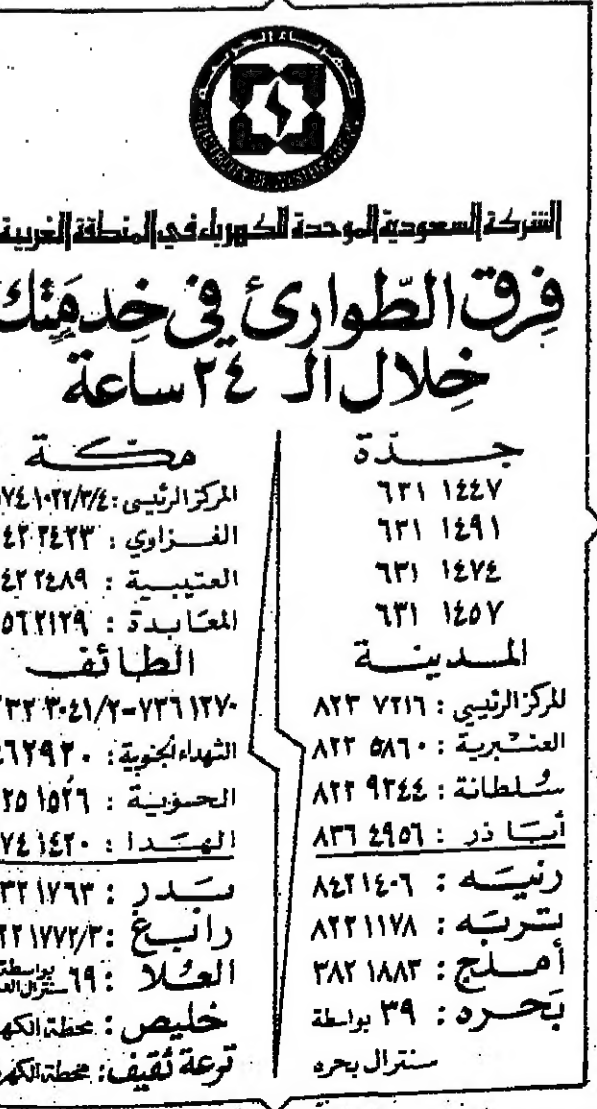 كهرباء الغربية
ELECTRICITY OF WESTERN
الشركة السعودية الموحدة للكهرباء في المنطقة الغربية
فِرق الطّوارئ في خِدمَتِك
خِلال الـ ٢٤ ساعة
جــدّة
٦٣١ ١٤٤٧
٦٣١ ١٤٩١
٦٣١ ١٤٧٤
٦٣١ ١٤٥٧
المدينة
المركز الرئيسي : ٨٢٣ ٧٢١٦
العنبرية : ٨٢٣ ٥٨٦٠
سُلطانة : ٨٢٢ ٩٣٤٤
أبا ذر : ٨٣٦ ٤٩٥٦
رنيه : ٨٤٢١٤٠٦
تربه : ٨٢٢١١٧٨
أملج : ٣٨٢ ١٨٨٣
بَحره : ٣٩ بواسطة
سنترال بحره
مكة
المركز الرئيسي : ٧٤١٠٢٢/٣/٤
الغزاوي : ٤٢٣٤٢٣
العتيبية : ٤٢٢٤٨٩
المعَابدة : ٥٦٢١٢٩
الطائف
٧٣٦١٢٧٠-٣٢٣٠٤١/٢
الشهداء الجنوبية : ٤٦٢٩٢٠
الحوية : ٢٥١٥٢٦
الهَدا : ٧٤١٤٢٠
بدر : ٣٢١٧٦٣
رابغ : ٢٢١٧٧٢/٣
العُلا : ٦٩ بواسطة
سنترال
خليص : محطة
ترعة ثقيف : محطة